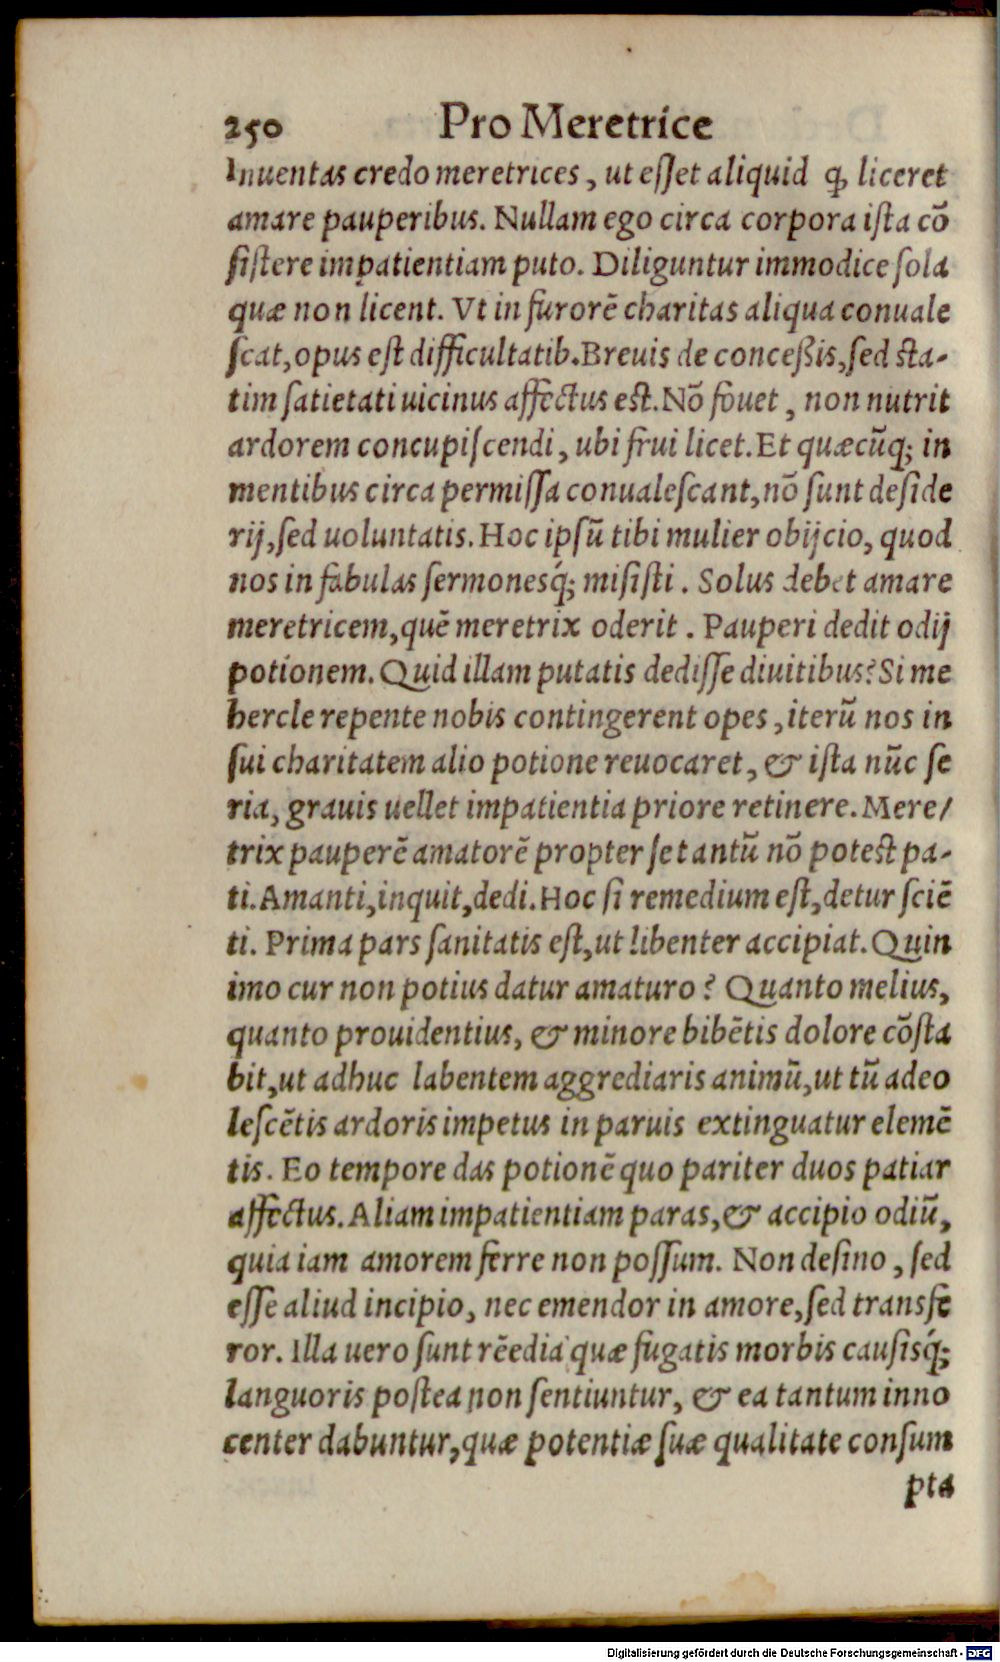 250 Pro Meretrice
Inuentas credo meretrices, ut eſſet aliquid ꝙ liceret
amare pauperibus. Nullam ego circa corpora iſta cõ
ſiſtere impatientiam puto. Diliguntur immodice ſola
quæ non licent. Vt in furorẽ charitas aliqua conuale
ſcat, opus eſt difficultatib. Breuis de conceßis, ſed sta-
tim ſatietati uicinus affectus est. Nõ fouet, non nutrit
ardorem concupiſcendi, ubi frui licet. Et quæcũq; in
mentibus circa permiſſa conualeſcant, nõ ſunt deſide
rij, ſed uoluntatis. Hoc ipſũ tibi mulier obijcio, quod
nos in fabulas ſermonesq́; miſiſti. Solus debet amare
meretricem, quẽ meretrix oderit. Pauperi dedit odij
potionem. Quid illam putatis dediſſe diuitibus? Si me
hercle repente nobis contingerent opes, iterũ nos in
ſui charitatem alio potione reuocaret, & iſta nũc ſe
ria, grauis uellet impatientia priore retinere. Mere/
trix pauperẽ amatorẽ propter ſe tantũ nõ potest pa-
ti. Amanti, inquit, dedi. Hoc ſi remedium eſt, detur ſciẽ
ti. Prima pars ſanitatis eſt, ut libenter accipiat. Quin
imo cur non potius datur amaturo? Quanto melius,
quanto prouidentius, & minore bibẽtis dolore cõſta
bit, ut adhuc labentem aggrediaris animũ, ut tũ adeo
leſcẽtis ardoris impetus in paruis extinguatur elemẽ
tis. Eo tempore das potionẽ quo pariter duos patiar
affectus. Aliam impatientiam paras, & accipio odiũ,
quia iam amorem ferre non poſſum. Non deſino, ſed
eſſe aliud incipio, nec emendor in amore, ſed transfe
ror. Illa uero ſunt rẽedia quæ fugatis morbis cauſisq́;
languoris poſtea non ſentiuntur, & ea tantum inno
center dabuntur, quæ potentiæ ſuæ qualitate conſum
pta
Digitalisierung gefördert durch die Deutsche Forschungsgemeinschaft - DFG